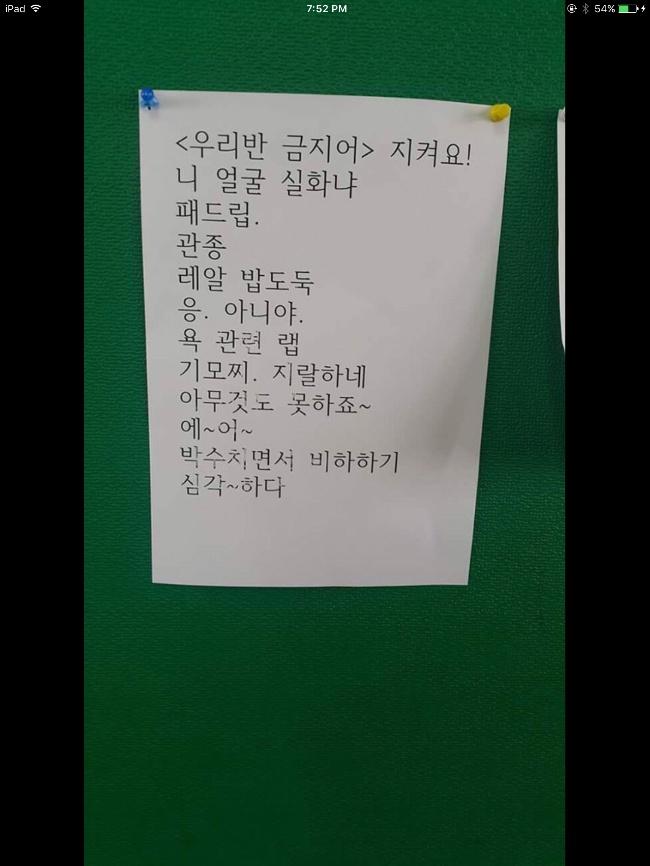 iPad 7:52 PM 54%
<우리반 금지어> 지켜요!
니 얼굴 실화냐
패드립.
관종
레알 밥도둑
응. 아니야.
욕 관련 랩
기모찌. 지랄하네
아무것도 못하죠~
에~어~
박수치면서 비하하기
심각~하다